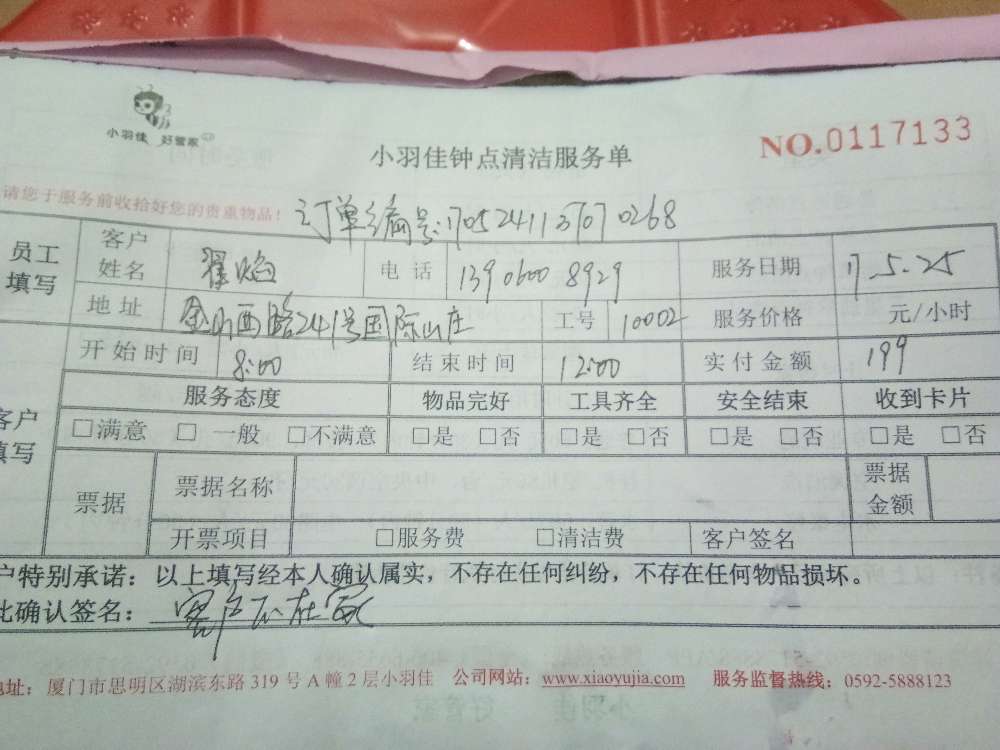 小羽佳 好管家
NO.0117133
小羽佳钟点清洁服务单
请您于服务前收拾好您的贵重物品！
订单编号:1705241137070268
员工填写 客户姓名 翟焰 电话 13906008929 服务日期 17.5.25
地址 金山西路241号国际山庄 工号 10002 服务价格 元/小时
开始时间 8:00 结束时间 12:00 实付金额 199
客户填写 服务态度 物品完好 工具齐全 安全结束 收到卡片
□满意 □一般 □不满意 □是 □否 □是 □否 □是 □否 □是 □否
票据 票据名称 票据金额
开票项目 □服务费 □清洁费 客户签名
户特别承诺：以上填写经本人确认属实，不存在任何纠纷，不存在任何物品损坏。
此确认签名：客户不在家
地址：厦门市思明区湖滨东路 319 号 A 幢 2 层小羽佳 公司网站：www.xiaoyujia.com 服务监督热线：0592-5888123